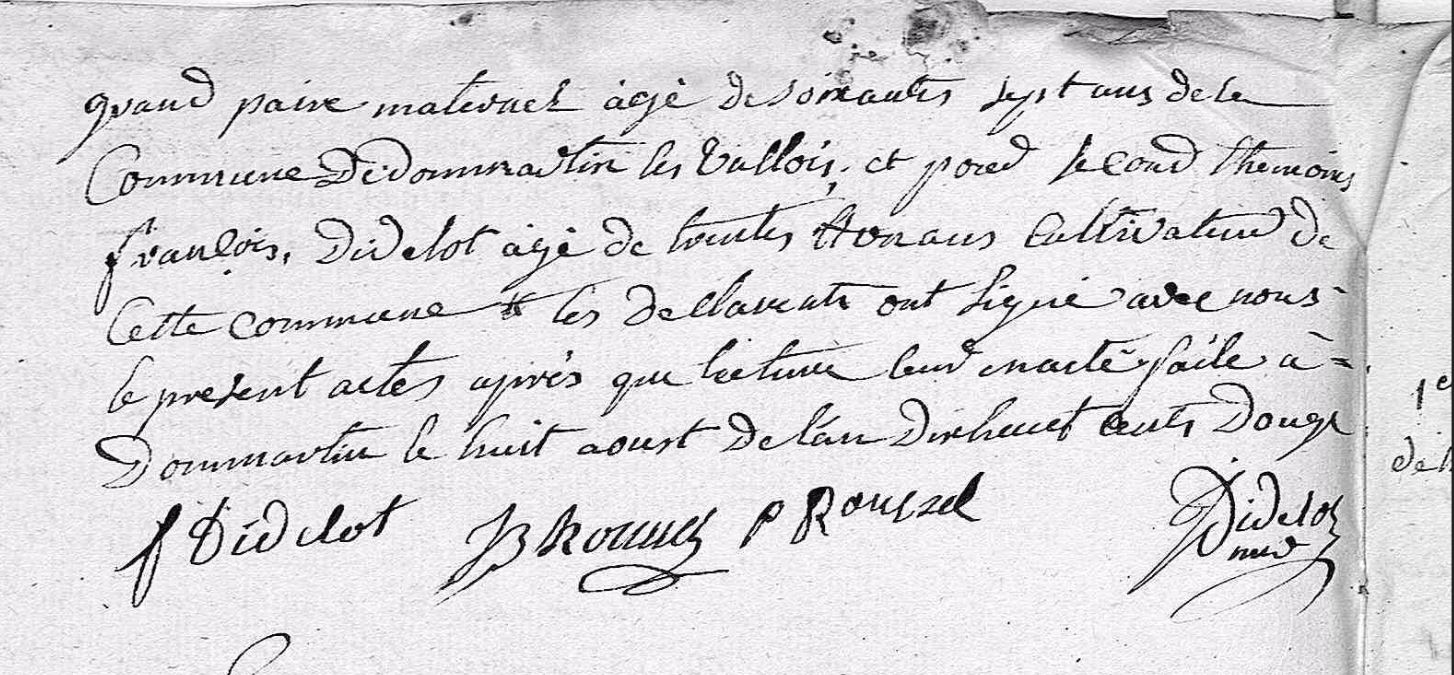 grand paire maternel agé de soixantes sept ans de la
Commune De dommartin les Vallois, et pour second themoins
françois, Didelot agé de trentes ans cultivateur de
Cette commune les declarents ont signé avec nous
le present actes après que lecture leur en a été faite à =
Dommartin le huit aoust De l'an Dix huit cents Douze
f Didelot JB P Rouszel Didelot
1e
de